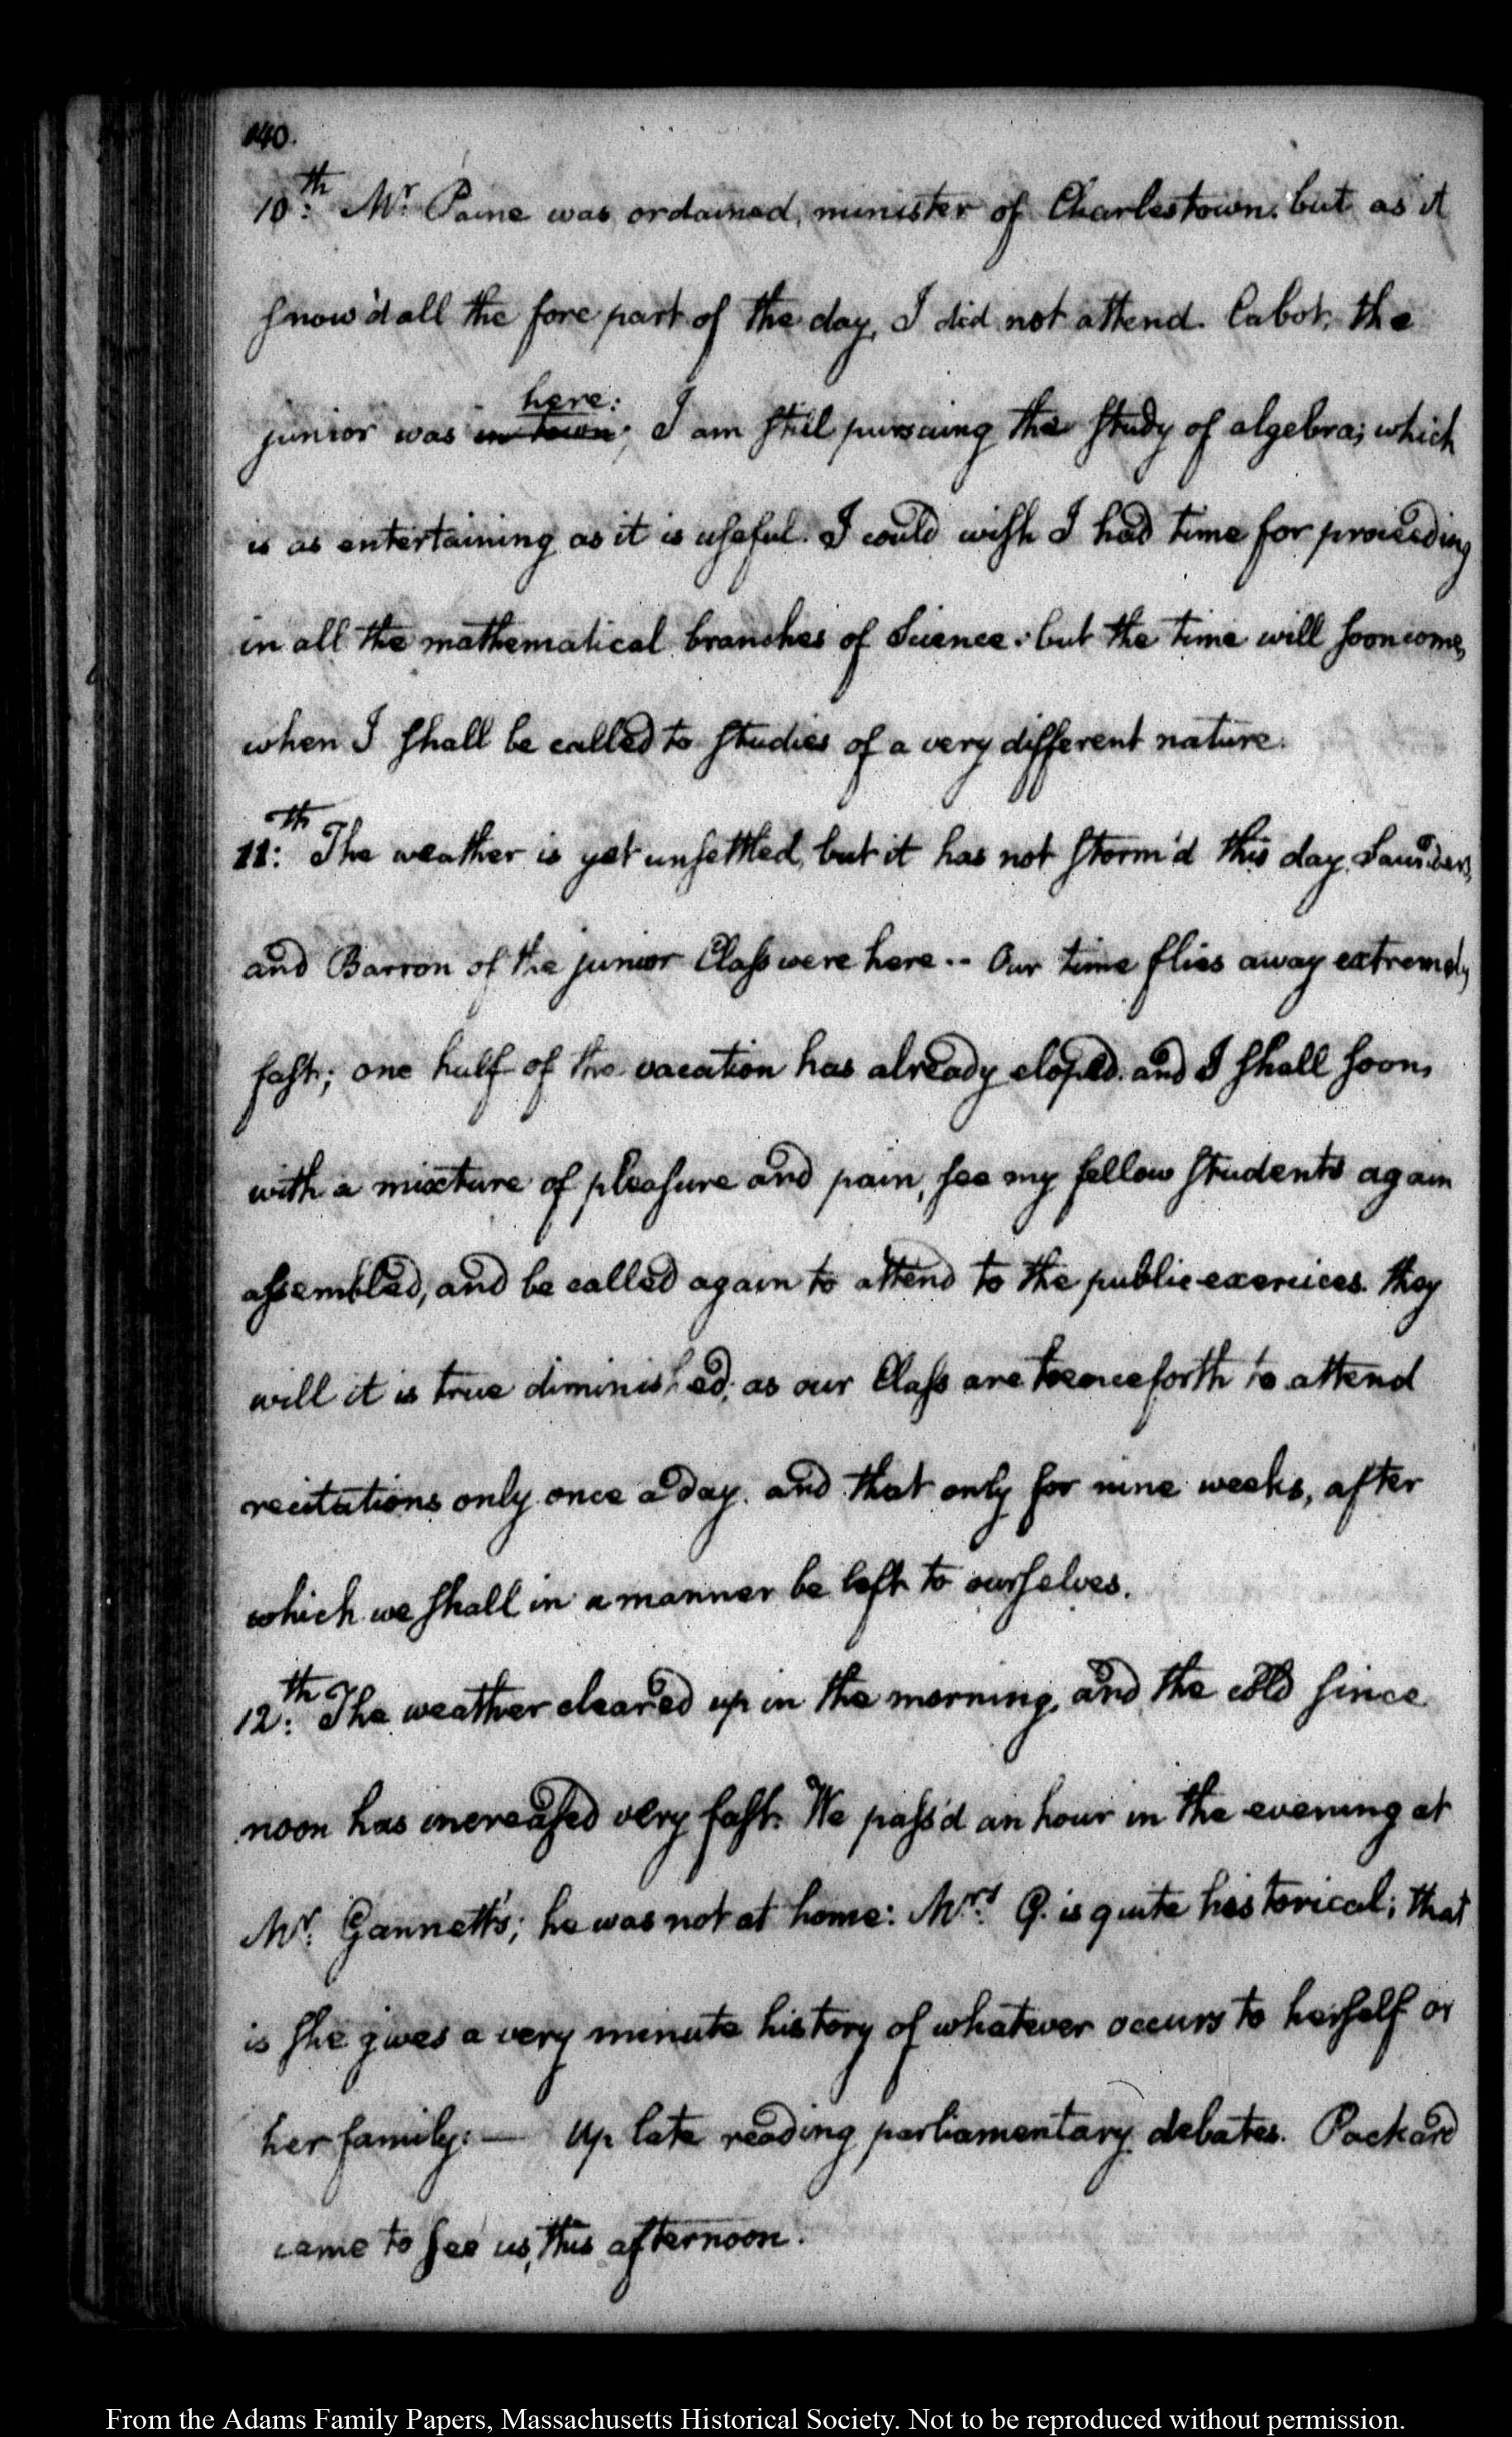 140.
10.th Mr. Paine was ordained, minister of Charlestown. but as it
snow'd all the fore part of the day, I did not attend. Cabot, the
here:
junior was in town; I am still pursuing the study of algebra; which
is as entertaining as it is useful. I could wish I had time for proceeding
in all the mathematical branches of Science: but the time will soon come,
when I shall be called to studies of a very different nature.
11:th The weather is yet unsettled, but it has not storm'd this day. Saunders,
and Barron of the junior Class were here -- Our time flies away extremely
fast; one half of the vacation has already elop'd. and I shall soon,
with a mixture of pleasure and pain, see my fellow students again
assembled, and be called again to attend to the public exercices. they
will it is true diminished; as our Class are henceforth to attend
recitations only once a day. and that only for nine weeks, after
which we shall in a manner be left to ourselves.
12:th The weather cleared up in the morning, and the cold since
noon has increased very fast. We pass'd an hour in the evening at
Mr. Gannett's; he was not at home: Mrs. G. is quite historical; that
is she gives a very minute history of whatever occurs to herself or
her family: — Up late reading parliamentary debates. Packard
came to see us, this afternoon.
From the Adams Family Papers, Massachusetts Historical Society. Not to be reproduced without permission.